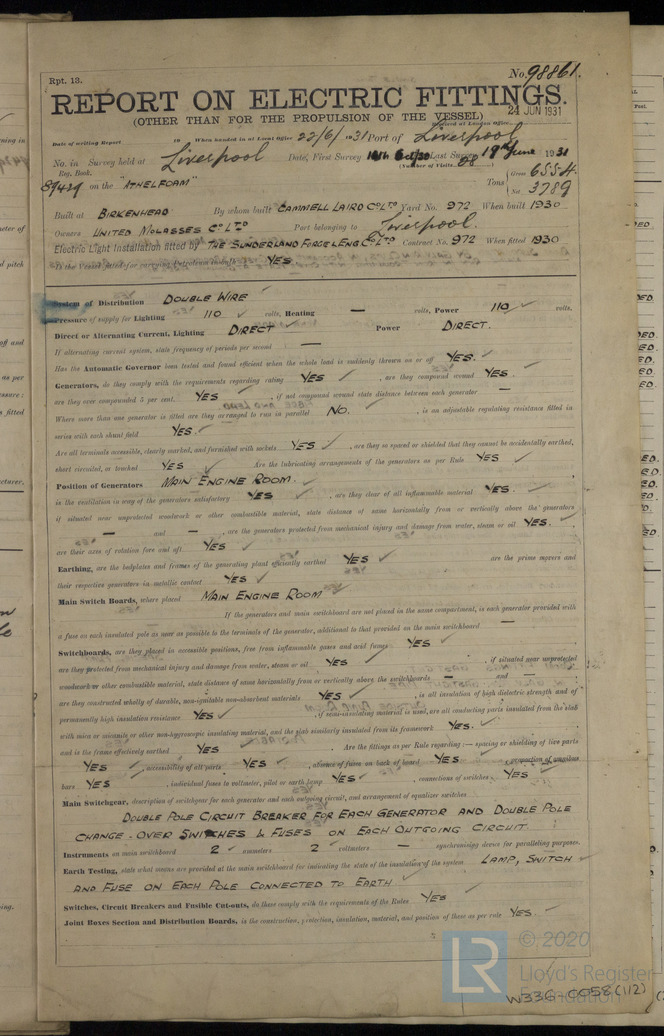 Rpt. 13.
No. 98861.
REPORT ON ELECTRIC FITTINGS.
(OTHER THAN FOR THE PROPULSION OF THE VESSEL)
24 JUN 1931
Date of writing Report 19 When handed in at Local Office 22/6/1931 Port of Liverpool
No. in Survey held at Liverpool Date, First Survey Last Survey 19th June 1931
Reg. Book. (Number of Visits
89429 on the "ATHELFOAM" Tons Gross 6554
3789
Built at BIRKENHEAD By whom built CAMMELL LAIRD CO LTD Yard No. 972 When built 1930
Owners UNITED MOLASSES CO LTD Port belonging to Liverpool.
Electric Light Installation fitted by THE SUNDERLAND FORGE & ENG CO LTD Contract No. 972 When fitted 1930
Is the Vessel fitted for carrying Petroleum in bulk YES
System of Distribution DOUBLE WIRE
Pressure of supply for Lighting 110 volts, Heating — volts, Power 110 volts.
Direct or Alternating Current, Lighting DIRECT Power DIRECT.
If alternating current system, state frequency of periods per second —
Has the Automatic Governor been tested and found efficient when the whole load is suddenly thrown on or off YES.
Generators, do they comply with the requirements regarding rating YES , are they compound wound YES.
are they over compounded 5 per cent. YES , if not compound wound state distance between each generator —
Where more than one generator is fitted are they arranged to run in parallel NO. , is an adjustable regulating resistance fitted in
series with each shunt field YES.
Are all terminals accessible, clearly marked, and furnished with sockets YES , are they so spaced or shielded that they cannot be accidentally earthed,
short circuited, or touched YES Are the lubricating arrangements of the generators as per Rule YES
Position of Generators MAIN ENGINE ROOM.
is the ventilation in way of the generators satisfactory YES , are they clear of all inflammable material YES.
if situated near unprotected woodwork or other combustible material, state distance of same horizontally from or vertically above the generators
— and — , are the generators protected from mechanical injury and damage from water, steam or oil YES.
are their axes of rotation fore and aft YES
Earthing, are the bedplates and frames of the generating plant efficiently earthed YES are the prime movers and
their respective generators in metallic contact YES
Main Switch Boards, where placed MAIN ENGINE ROOM
If the generators and main switchboard are not placed in the same compartment, is each generator provided with
a fuse on each insulated pole as near as possible to the terminals of the generator, additional to that provided on the main switchboard —
Switchboards, are they placed in accessible positions, free from inflammable gases and acid fumes YES
are they protected from mechanical injury and damage from water, steam or oil YES , if situated near unprotected
woodwork or other combustible material, state distance of same horizontally from or vertically above the switchboards — and —
are they constructed wholly of durable, non-ignitable non-absorbent materials YES , is all insulation of high dielectric strength and of
permanently high insulation resistance YES , if semi-insulating material is used, are all conducting parts insulated from the slab
with mica or micanite or other non-hygroscopic insulating material, and the slab similarly insulated from its framework YES.
and is the frame effectively earthed YES Are the fittings as per Rule regarding:— spacing or shielding of live parts
YES , accessibility of all parts YES , absence of fuses on back of board YES , proportion of omnibus
bars YES , individual fuses to voltmeter, pilot or earth lamp YES , connections of switches YES
Main Switchgear, description of switchgear for each generator and each outgoing circuit, and arrangement of equalizer switches
DOUBLE POLE CIRCUIT BREAKER FOR EACH GENERATOR AND DOUBLE POLE
CHANGE-OVER SWITCHES & FUSES ON EACH OUTGOING CIRCUIT
Instruments on main switchboard 2 ammeters 2 voltmeters — synchronising device for paralleling purposes.
Earth Testing, state what means are provided at the main switchboard for indicating the state of the insulation of the system LAMP, SWITCH
AND FUSE ON EACH POLE CONNECTED TO EARTH
Switches, Circuit Breakers and Fusible Cut-outs, do these comply with the requirements of the Rules YES
Joint Boxes Section and Distribution Boards, is the construction, protection, insulation, material, and position of these as per rule YES.
LR © 2020
Lloyd's Register
Foundation
W336-0058(1/2)